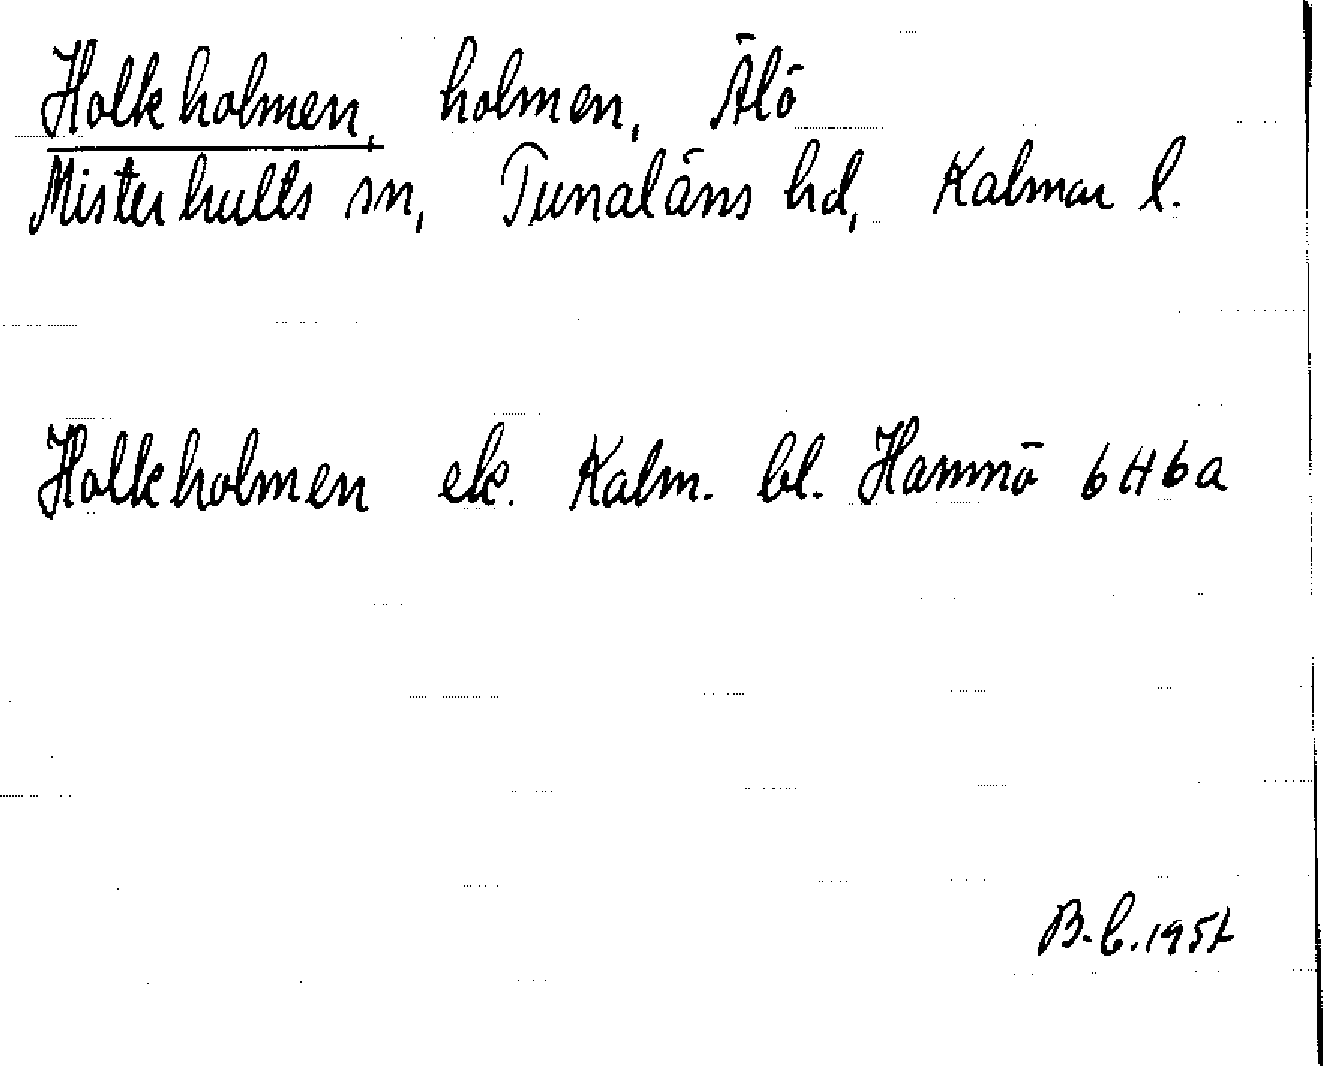 Holkholmen, holmen, Älö
Misterhults sn, Tunaläns hd, Kalmar l.
Holkholmen ek. Kalm. bl. Hamnö 6H6a
B.C.1951